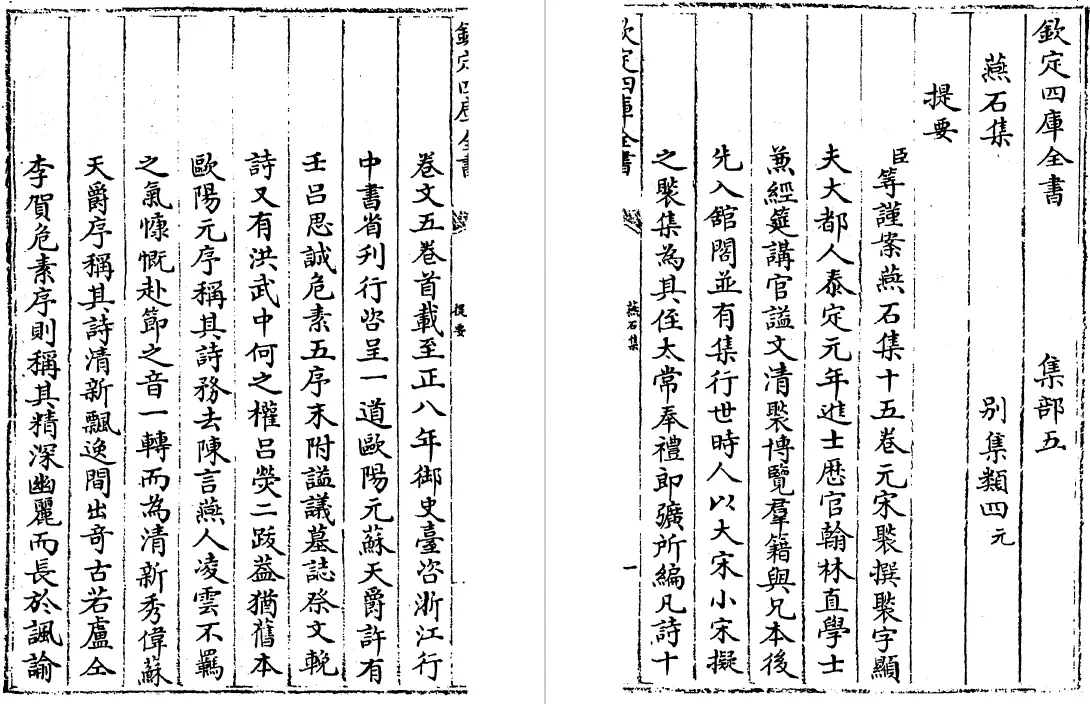 欽定四庫全書 集部五
燕石集 別集類四元
提要
臣等謹案燕石集十五卷元宋褧撰褧字顯
夫大都人泰定元年進士歴官翰林直學士
兼經筵講官謚文清褧博覽羣籍與兄本後
先入舘閣並有集行世時人以大宋小宋擬
之褧集為其侄太常奉禮郎彍所編凡詩十
欽定四庫全書 燕石集 一
欽定四庫全書 提要
卷文五卷首載至正八年御史臺咨浙江行
中書省刋行咨呈一道歐陽元蘇天爵許有
壬吕思誠危素五序末附謚議墓誌祭文輓
詩又有洪武中何之權吕熒二跋葢猶舊本
歐陽元序稱其詩務去陳言燕人凌雲不羈
之氣慷慨赴節之音一轉而為清新秀偉蘇
天爵序稱其詩清新飄逸間出奇古若盧仝
李賀危素序則稱其精深幽麗而長於諷諭